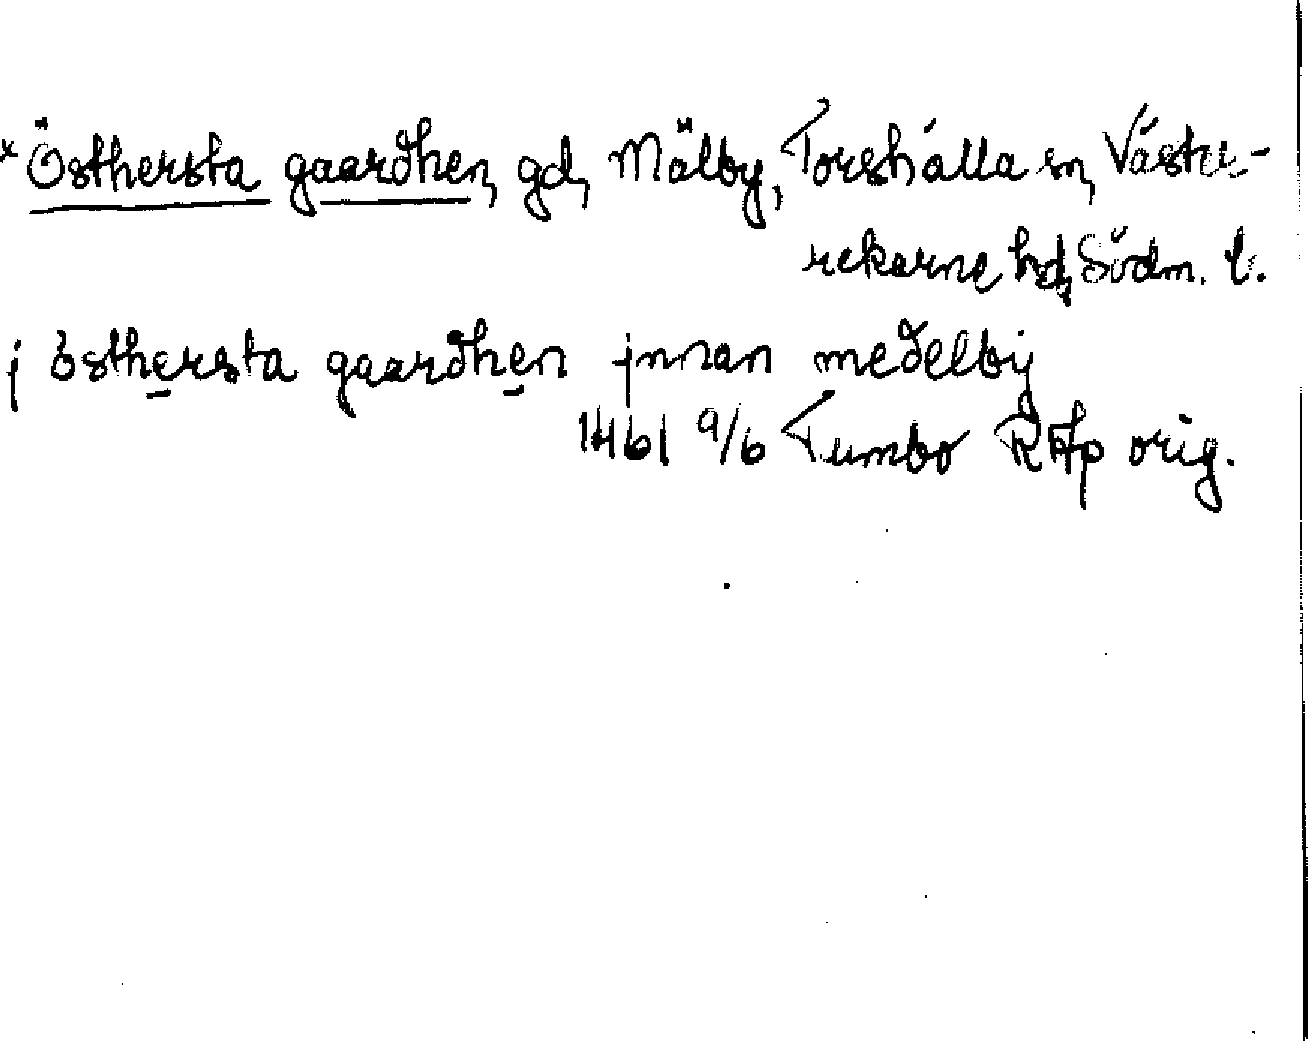 *Östhersta gaardhen, gd, Mälby, Torshälla sn, Väster-
rekarne hd, Södm. l.
j östhersta gaardhen jnnan medelby
1461 9/6 Tumbo RAp orig.